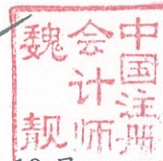 中国注册
会计师
魏靓